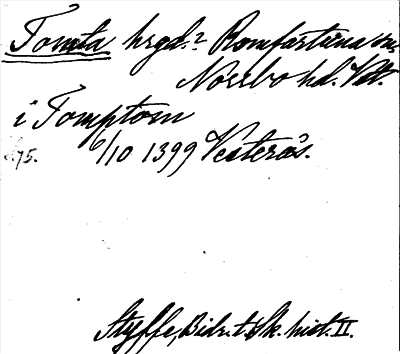 Tomta hrgd.? Romfartuna sn,
Norrbo hd. Vstl.
i Tomptom
6/10 1399 Vesterås.
s. 75.
Styffe, Bidr. t. Sk. hist. II.